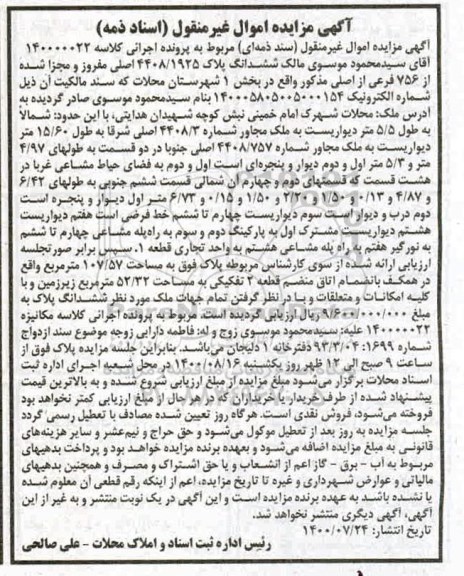 آگهی مزایده اموال غیرمنقول (اسناد ذمه)
آگهی مزایده اموال غیرمنقول (سند ذمه‌ای) مربوط به پرونده اجرائی کلاسه ۱۴۰۰۰۰۰۲۲
آقای سیدمحمود موسوی مالک ششدانگ پلاک ۴۴۰۸/۱۹۲۵ اصلی مفروز و مجزا شده
از ۷۵۶ فرعی از اصلی مذکور واقع در بخش ۱ شهرستان محلات که سند مالکیت آن ذیل
شماره الکترونیک ۱۴۰۰۰۵۸۰۵۰۰۵۰۰۰۱۵۴ بنام سیدمحمود موسوی صادر گردیده به
آدرس ملک: محلات شهرک امام خمینی نبش کوچه شهیدان هدایتی، با این حدود: شمالاً
به طول ۵/۵ متر دیواریست به ملک مجاور شماره ۴۴۰۸/۳ اصلی شرقا به طول ۱۵/۶۰ متر
دیواریست به ملک مجاور شماره ۴۴۰۸/۷۵۷ اصلی جنوبا در دو قسمت به طولهای ۴/۹۷
متر و ۵/۳ متر اول و دوم دیوار و پنجره‌ای است اول و دوم به فضای حیاط مشاعی غربا در
هشت قسمت که قسمتهای دوم و چهارم آن شمالی قسمت ششم جنوبی به طولهای ۶/۴۲
و ۴/۸۷ و ۰/۱۳ و ۱/۵۰ و ۲/۲۰ و ۱/۵۰ و ۰/۱۵ و ۶/۷۳ متر اول دیوار و پنجره است
دوم درب و دیوار است سوم دیواریست چهارم تا ششم خط فرضی است هفتم دیواریست
هشتم دیواریست مشترک اول به پارکینگ دوم و سوم به راه‌پله مشاعی چهارم تا ششم
به نورگیر هفتم به راه پله مشاعی هشتم به واحد تجاری قطعه ۱، سپس برابر صورتجلسه
ارزیابی ارائه شده از سوی کارشناس مربوطه پلاک فوق به مساحت ۱۰۷/۵۷ مترمربع واقع
در همکف بانضمام اتاق منضم قطعه ۲ تفکیکی به مساحت ۵۲/۳۲ مترمربع زیرزمین و با
کلیه امکانات و متعلقات و با در نظر گرفتن تمام جهات ملک مورد نظر ششدانگ پلاک به
مبلغ ۹/۶۰۰/۰۰۰/۰۰۰ ریال ارزیابی گردیده است. مربوط به پرونده اجرائی کلاسه مکانیزه
۱۴۰۰۰۰۰۲۲ علیه: سیدمحمود موسوی زوج و له: فاطمه دارایی زوجه موضوع سند ازدواج
شماره ۱۶۹۹-۹۳/۳/۰۴ دفترخانه ۱ دلیجان می‌باشد. بنابراین جلسه مزایده پلاک فوق از
ساعت ۹ صبح الی ۱۲ ظهر روز یکشنبه ۱۴۰۰/۰۸/۱۶ در محل شعبه اجرای اداره ثبت
اسناد محلات برگزار می‌شود مبلغ مزایده از مبلغ ارزیابی شروع شده و به بالاترین قیمت
پیشنهاد شده از طرف خریدار یا خریداران که در هر حال از مبلغ ارزیابی کمتر نخواهد بود
فروخته می‌شود، فروش نقدی است. هرگاه روز تعیین شده مصادف با تعطیل رسمی گردد
جلسه مزایده به روز بعد از تعطیل موکول می‌شود و حق حراج و نیم‌عشر و سایر هزینه‌های
قانونی به مبلغ مزایده اضافه می‌شود و بعهده برنده مزایده خواهد بود و پرداخت بدهیهای
مربوط به آب - برق - گاز اعم از انشعاب و یا حق اشتراک و مصرف و همچنین بدهیهای
مالیاتی و عوارض شهرداری و غیره تا تاریخ مزایده، اعم از اینکه رقم قطعی آن معلوم شده
یا نشده باشد به عهده برنده مزایده است و این آگهی در یک نوبت منتشر و به غیر از این
آگهی، آگهی دیگری منتشر نخواهد شد.
تاریخ انتشار: ۱۴۰۰/۰۷/۲۴
رئیس اداره ثبت اسناد و املاک محلات - علی صالحی